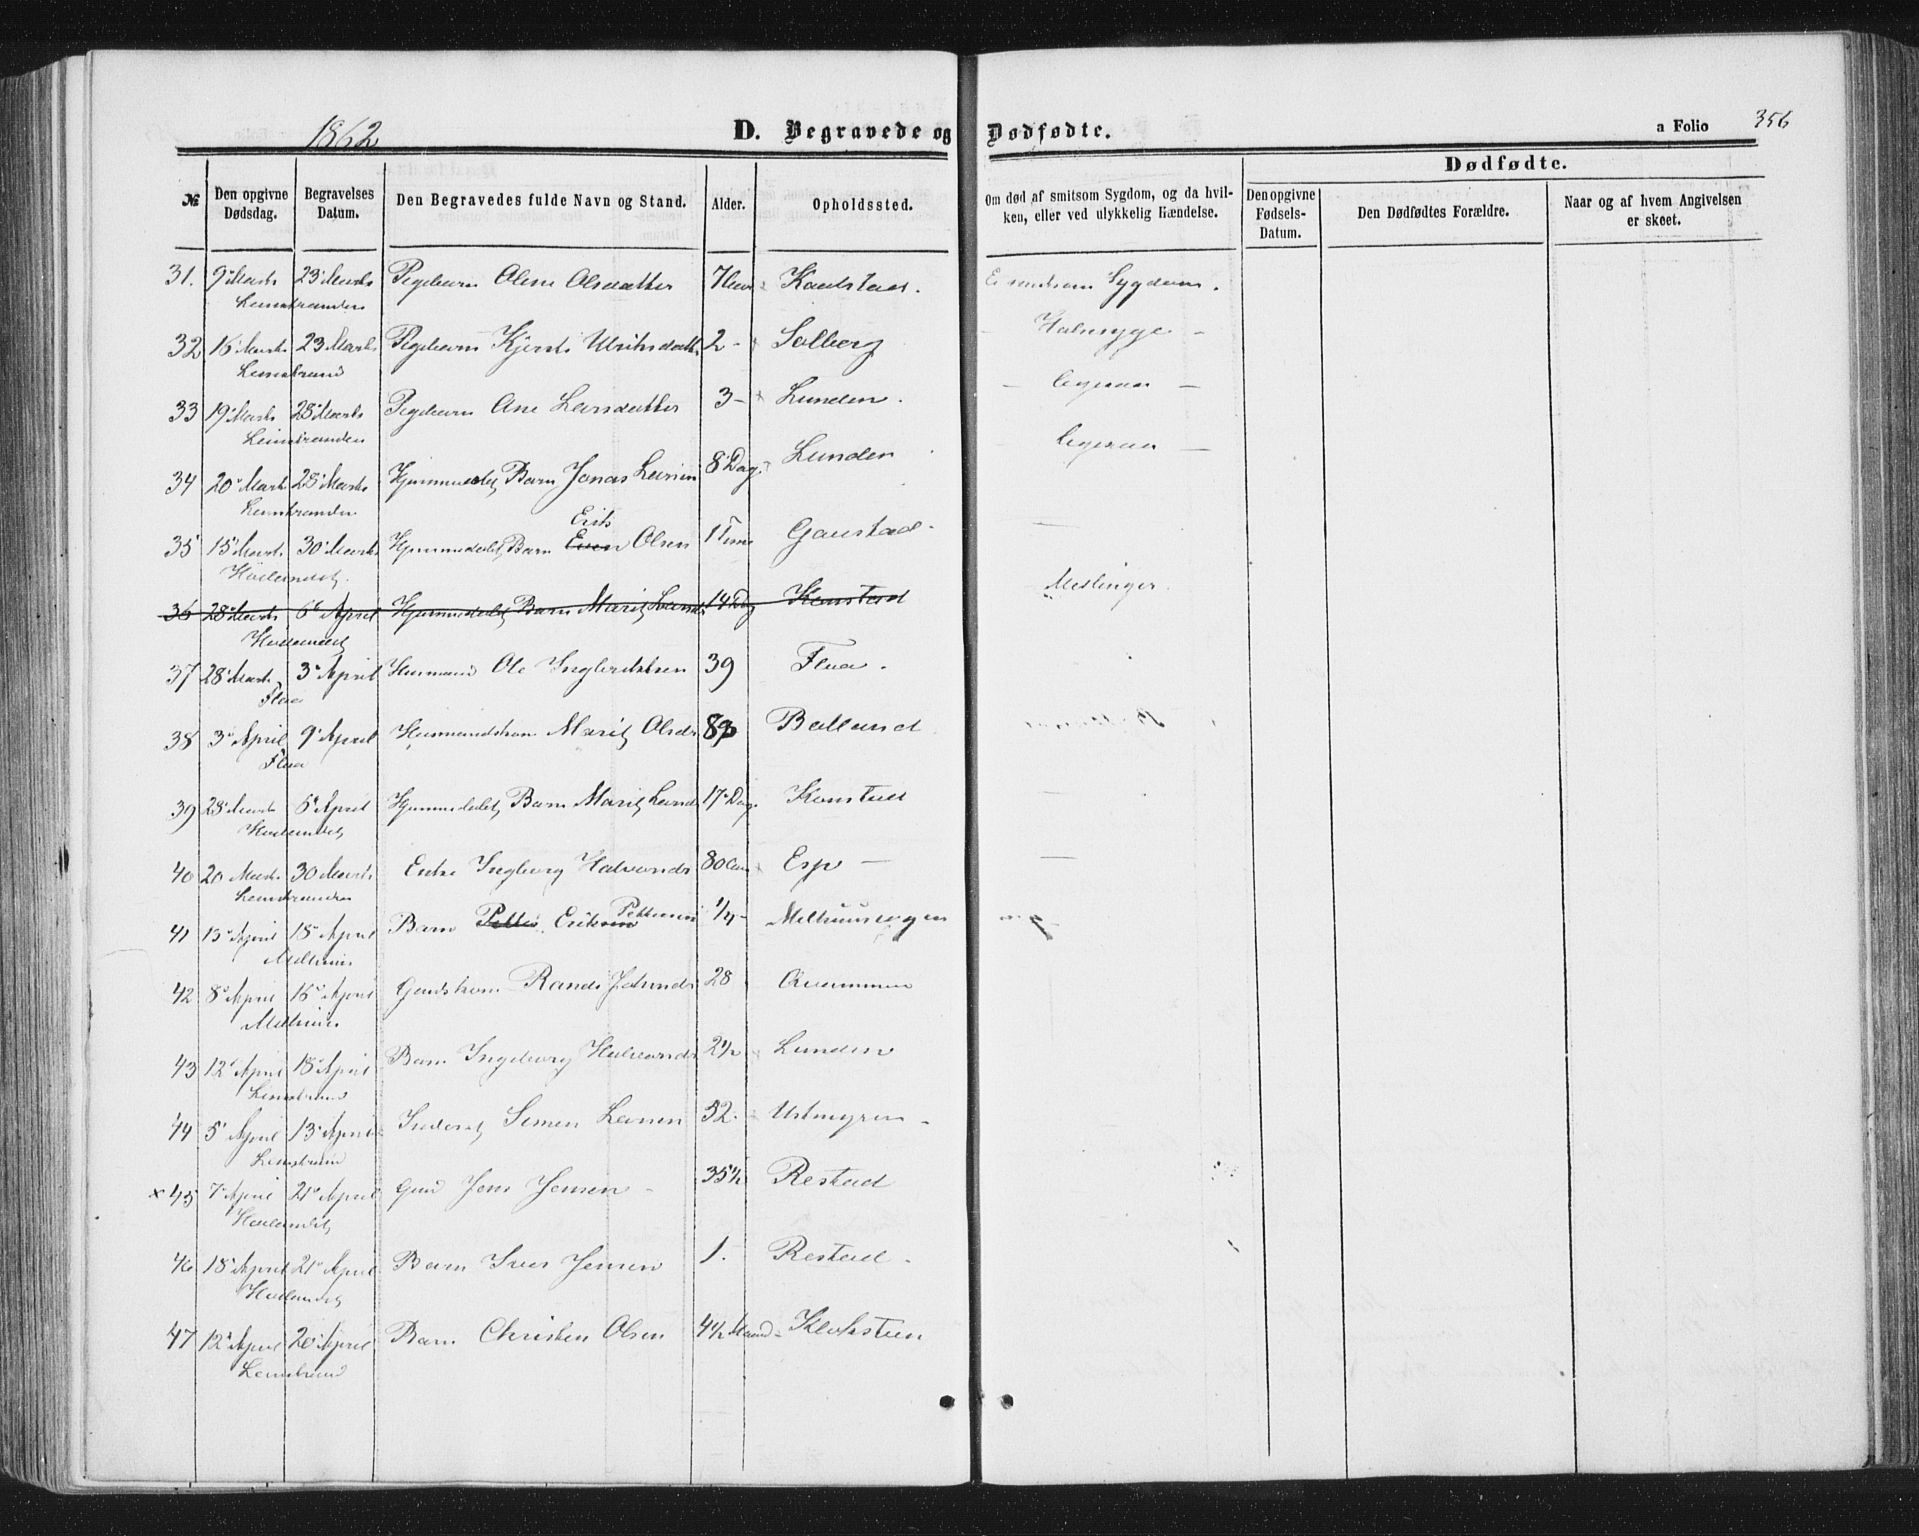 1862 D. Begravede og Dødfødte. a Folio 356
Dødfødte.
№ Den opgivne Dødsdag. Begravelses Datum. Den Begravedes fulde Navn og Stand. Alder. Opholdssted. Om død af smitsom Sygdom, og da hvilken, eller ved ulykkelig Hændelse. Den opgivne Fødsels-Datum. Den Dødfødtes Forældre. Naar og af hvem Angivelsen er skeet.
31. 9de Marts 23de Marts Pigebarn Olene Olsdatter Kaadstad. smitsom Sygdom.
Leinstranden
32 16 Marts 23 Marts Pigebarn 2 - Solberg Halssyge -
Leinstrand
33 19 Marts 28 Marts Pigebarn Ane Larsdatter 3 - Lunden. - ligesaa -
Leinstranden
34 20 Marts 28 Marts Hjemmedøbt Barn Jonas Larsen 8 Dag. Lunden ligesaa -
Leinstranden
Erik
35 15 Marts 30 Marts Hjemmedøbt Barn Even Olsen 1 Time Gaustad -
Hølandet.
36 28 Marts 6 April Hjemmedøbt Barn Marit Larsd 14 Dag Konstad Meslinger.
Hølandet
37 28 Marts 3 April Husmand Ole 39 Flaa.
Flaa
38 3 April 9 April Husmandskone Marit Olsd 83 Balland
Flaa
39 28 Marts 6 April Hjemmedøbt Barn Marit Larsd 17 Dag. Konstad
Hølandet
40 20 Marts 30 Marts Enke Ingborg Halvorsd 80 Aar Esp -
Leinstranden
41 13 April 18 April Barn Petter Eriksen Pettersen 1/4 - Melhuus
Melhuus
42 8 April 16 April Gaardkone Randi 28
Melhuus
43 12 April 18 April Barn Ingeborg Halvorsd 2 1/2 Lunden
Leinstrand
44 5 April 13 April Inderst Simen Larsen 52. Ustmyren -
Leinstrand
x 45 7 April 21 April Gmd Jens Jensen - 35 1/2 Restad
Hølandet
46 18 April 21 April Barn Iver Jensen 1. Restad -
Hølandet
47 12 April 20 April Barn Christen Olsen 4 1/2 Maaned - Kloksteen
Leinstrand